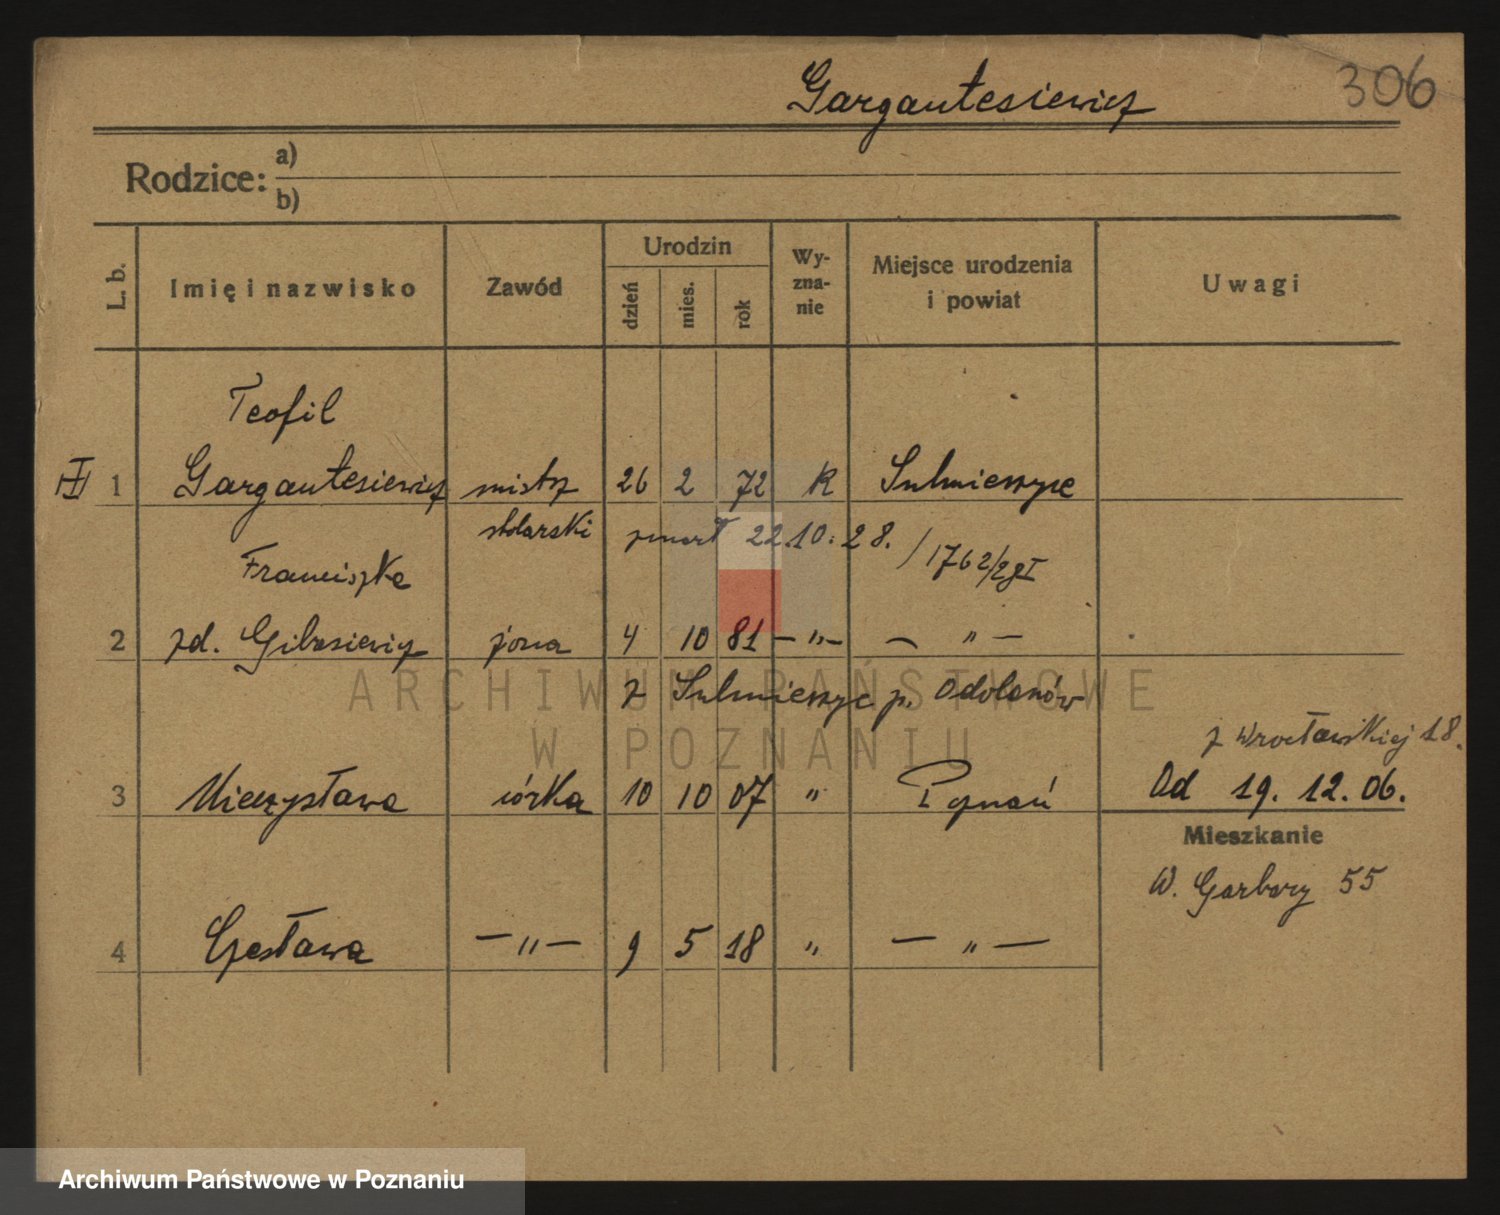 Gargantesiewicz
306
Rodzice: a)
b)
L. b. Imię i nazwisko Zawód Urodzin dzień mies. rok Wyznanie Miejsce urodzenia i powiat Uwagi
Teofil
1 Gargantesiewicz mistrz 26 2 72 K Sulmierzyce
stolarski zmarł 22.10.28. / 1762/28 I
Franciszka
2 zd. Gibasiewicz żona 4 10 81 — " — — " —
z Sulmierzyc p. Odolanów
z Wrocławskiej 18.
3 Mieczysława córka 10 10 07 " Poznań Od 19. 12. 06.
Mieszkanie
W. Garbary 55
4 Czesława — " — 9 5 18 " — " —
ARCHIWUM PAŃSTWOWE
W POZNANIU
Archiwum Państwowe w Poznaniu